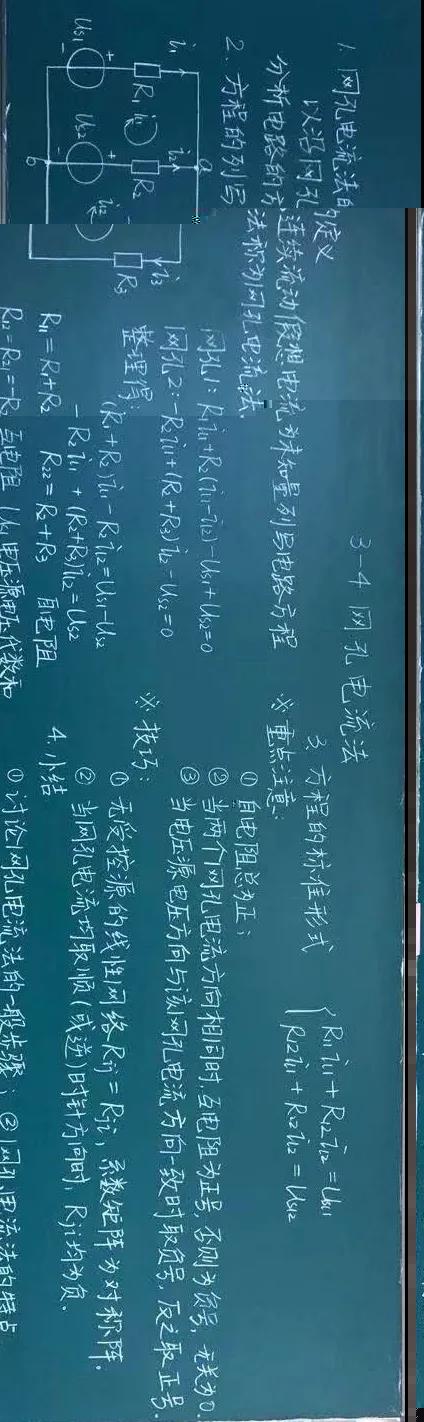 3-4 网孔电流法
1. 网孔电流法的定义
以沿网孔连续流动假想电流为未知量列写电路方程
分析电路的方法称为网孔电流法.
2. 方程的列写
i₁ i₂ i₃
a
R₁ R₂ R₃
iₗ₁ iₗ₂
+ +
- -
Uₛ₁ Uₛ₂
b
网孔1: R₁iₗ₁+R₂(iₗ₁-iₗ₂)-Uₛ₁+Uₛ₂=0
网孔2: -R₂iₗ₁+(R₂+R₃)iₗ₂-Uₛ₂=0
整理得:
(R₁+R₂)iₗ₁-R₂iₗ₂=Uₛ₁-Uₛ₂
-R₂iₗ₁+(R₂+R₃)iₗ₂=Uₛ₂
R₁₁=R₁+R₂ R₂₂=R₂+R₃ 自电阻
R₁₂=R₂₁=-R₂ 互电阻 电压源电压代数和
3. 方程的标准形式
R₁₁iₗ₁+R₁₂iₗ₂=Uₛₗ₁
R₁₂iₗ₁+R₂₂iₗ₂=Uₛₗ₂
※ 重点注意:
① 自电阻总为正;
② 当两个网孔电流方向相同时,互电阻为正号,否则为负号,无关为0.
③ 当电压源电压方向与该网孔电流方向一致时取负号,反之取正号.
※ 技巧:
① 无受控源的线性网络Rᵢⱼ=Rⱼᵢ,系数矩阵为对称阵.
② 当网孔电流均取顺(或逆)时针方向时,Rⱼᵢ均为负.
4. 小结
① 讨论网孔电流法的一般步骤; ② 网孔电流法的特点